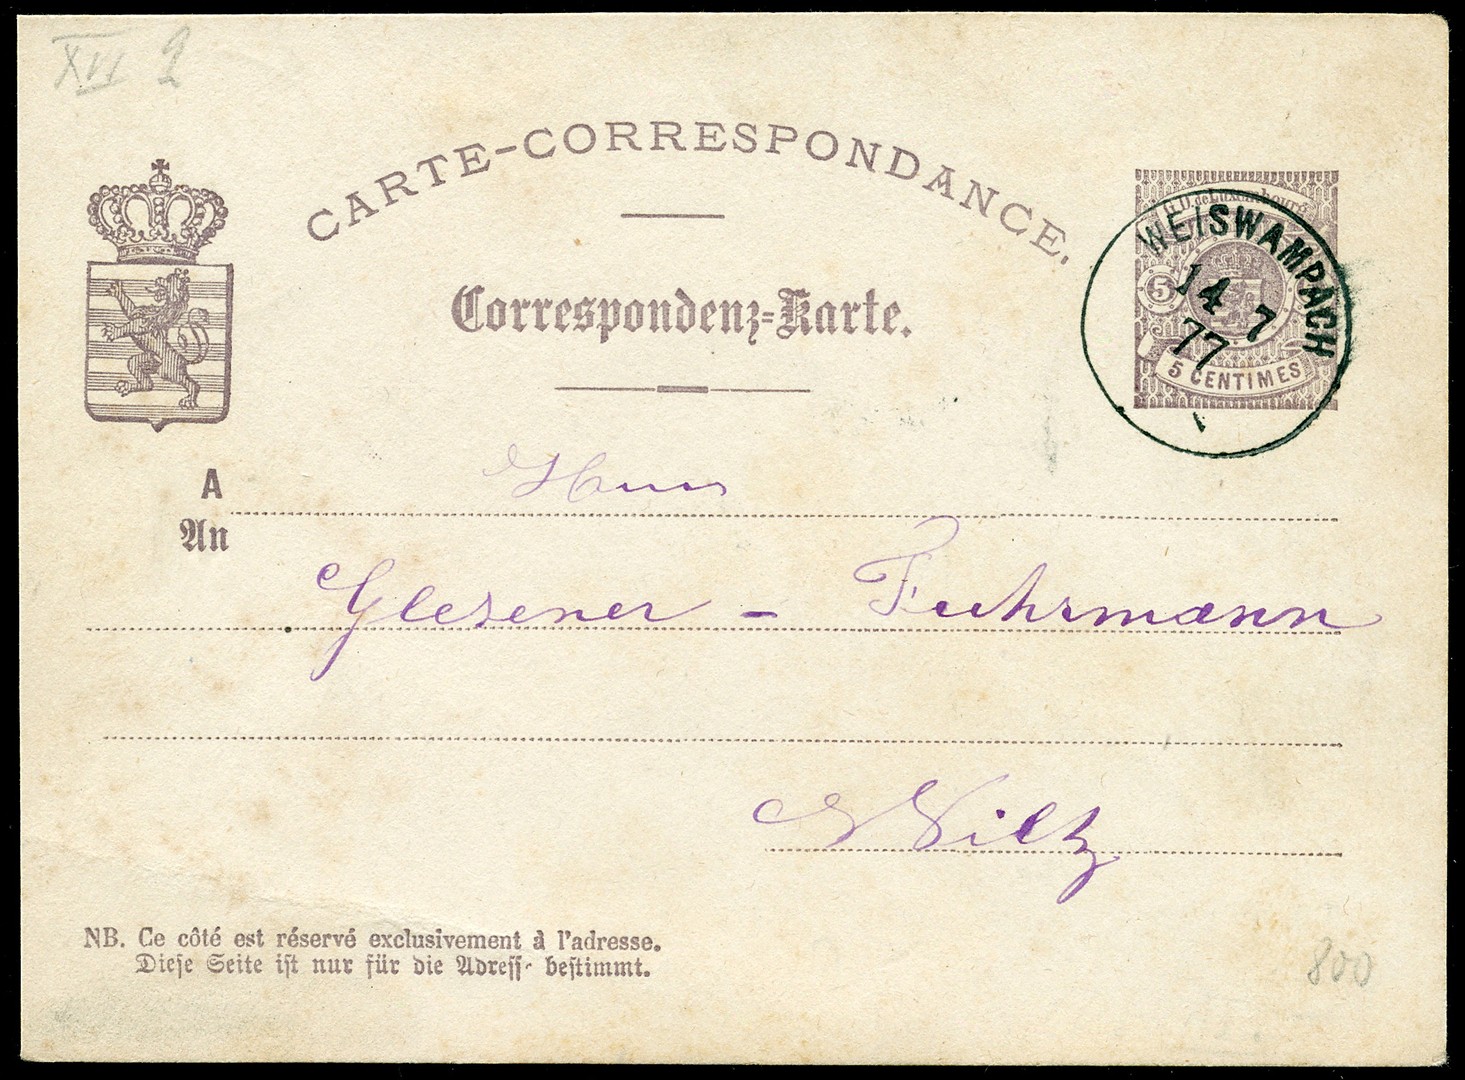 XVI 2
CARTE-CORRESPONDANCE.
Correspondenz-Karte.
G.D. de Luxembourg
5
5 CENTIMES
WEISWAMPACH
14 7
77
A
An
Herrn
Glesener - Fuhrmann
Wiltz
NB. Ce côté est réservé exclusivement à l'adresse.
Diese Seite ist nur für die Adresse bestimmt.
800